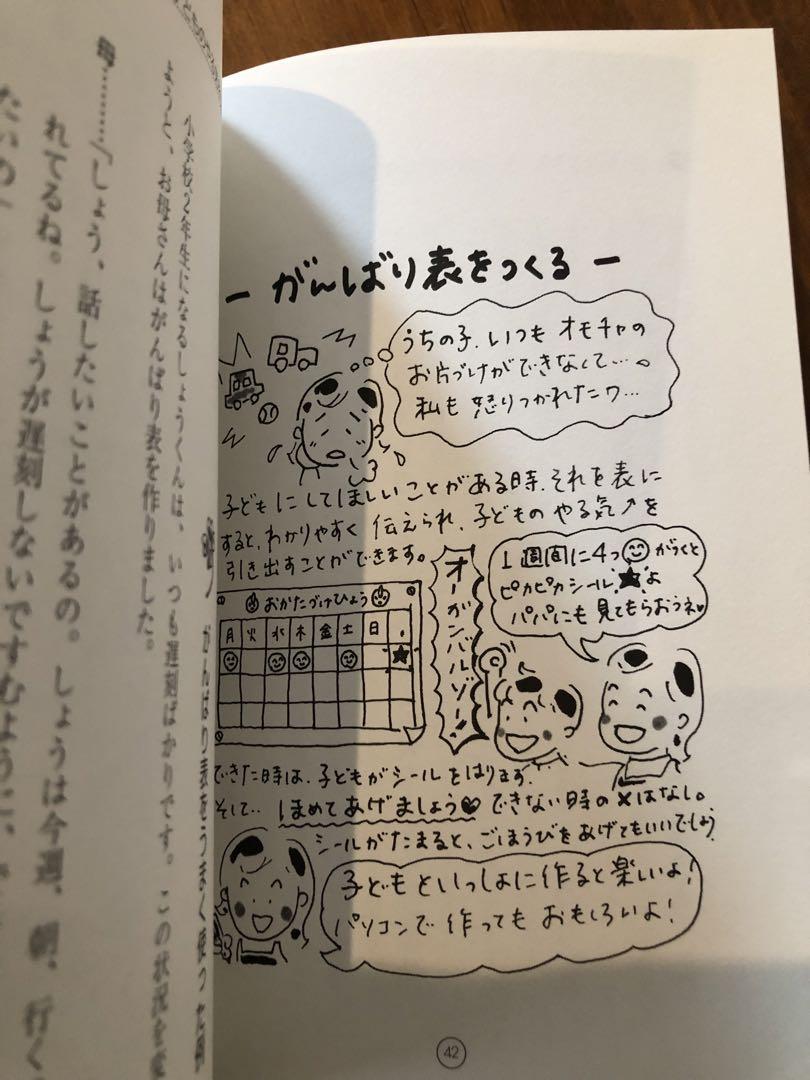 ー がんばり表をつくる ー
うちの子、いつも オモチャの
お片づけができなくて…。
私も 怒りつかれたワ…
子どもにしてほしいことがある時、それを表に
すると、わかりやすく 伝えられ、子どもの やる気↗を
引き出すことができます。
オーガンバルゾー!
1週間に4つ☺がつくと
ピカピカシール★よ
パパにも見てもらおうネ♥
おかたづけひょう
月 火 水 木 金 土 日
できた時は、子どもがシールをはります。
そして‥ ほめてあげましょう♥ できない時の×はなし。
シールがたまると、ごほうびをあげてもいいでしょう
子どもといっしょに作ると楽しいよ!
パソコンで作っても おもしろいよ!
42
小学校2年生になるしょうくんは、いつも遅刻ばかりです。この状況を
ようと、お母さんはがんばり表を作りました。
母…………「しょう、話したいことがあるの。しょうは今週、朝、行く
れてるね。しょうが遅刻しないですむように、
たいの